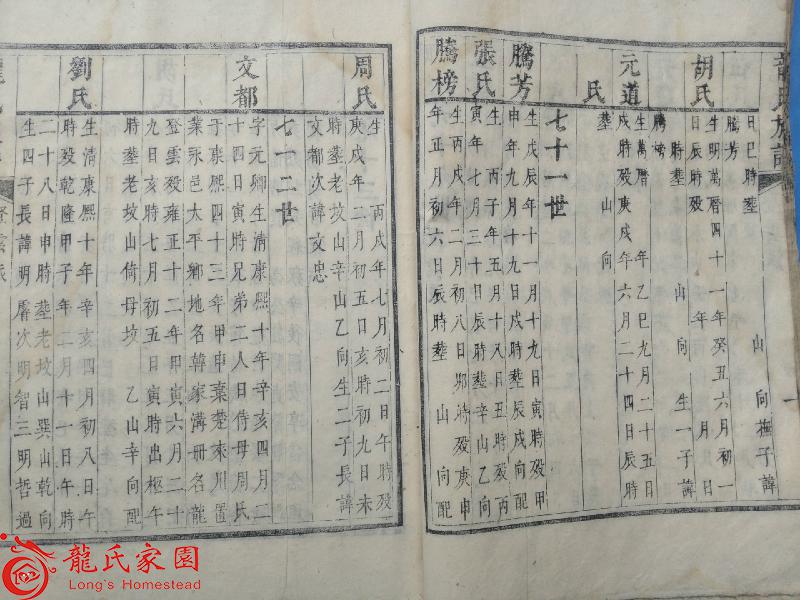 龍氏族譜
一
日巳時葬 山 向撫子諱
騰芳
胡氏 生明萬曆四十一年癸五六月初一
日辰時殁 年 月 日
時葬 山 向 生一子諱
騰榜
元道 生萬曆 年乙巳九月二十五日
戌時殁庚戌年六月二十四日辰時
葬 山 向
氏
七十一世
騰芳 生戊辰年十一月十九日寅時殁甲
申年九月十九日戌時葬辰戌向配
張氏 生丙子年五月十八日丑時殁丙
寅年七月三十日辰時葬辛山乙向
騰榜 生丙戌年二月初八日卯時殁庚申
年正月初六日辰時葬 山 向配
周氏 生 丙戌年七月初二日午時殁
庚戌年二月初五日亥時初九日未
時葬老坟山辛山乙向生二子長諱
文都次諱文忠
七一二世
文都 字元卿生清康熙十年辛亥四月二
十四日寅時兄弟二人日侍母周氏
于康熙四十三年甲申棄楚來川置
業永邑太平鄉地名韓家溝册名龍
登雲殁雍正十二年甲寅六月二十
九日亥時七月初五日寅時出柩午
時葬老坟山倚母坟 乙山辛向配
劉氏 生清康熙十年辛亥四月初八日午
時殁乾隆甲子年二月十一日午時
二十八日申時葬老坟山巽山乾向
生四子長諱明曆次明智三明哲過
龍氏家園
Long's Homestead